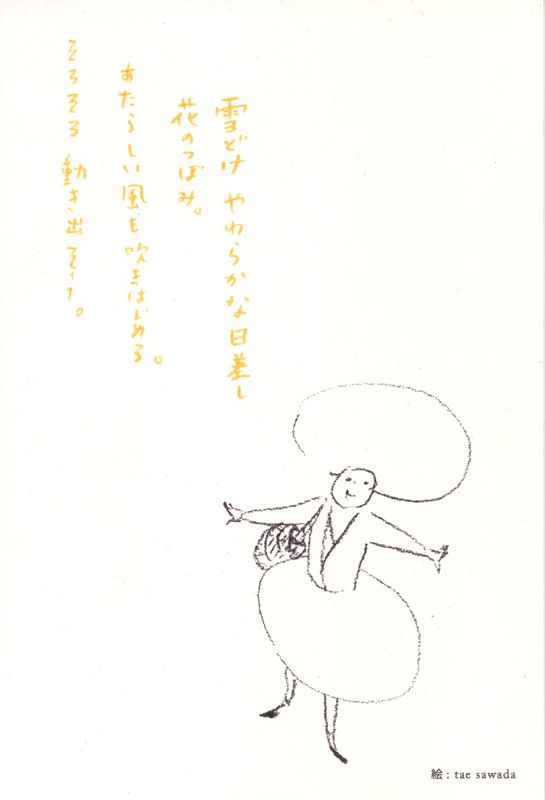 雪どけ やわらかな日差し
花のつぼみ。
あたらしい風も吹きはじめる。
そろそろ 動き出そう。
絵 : tae sawada